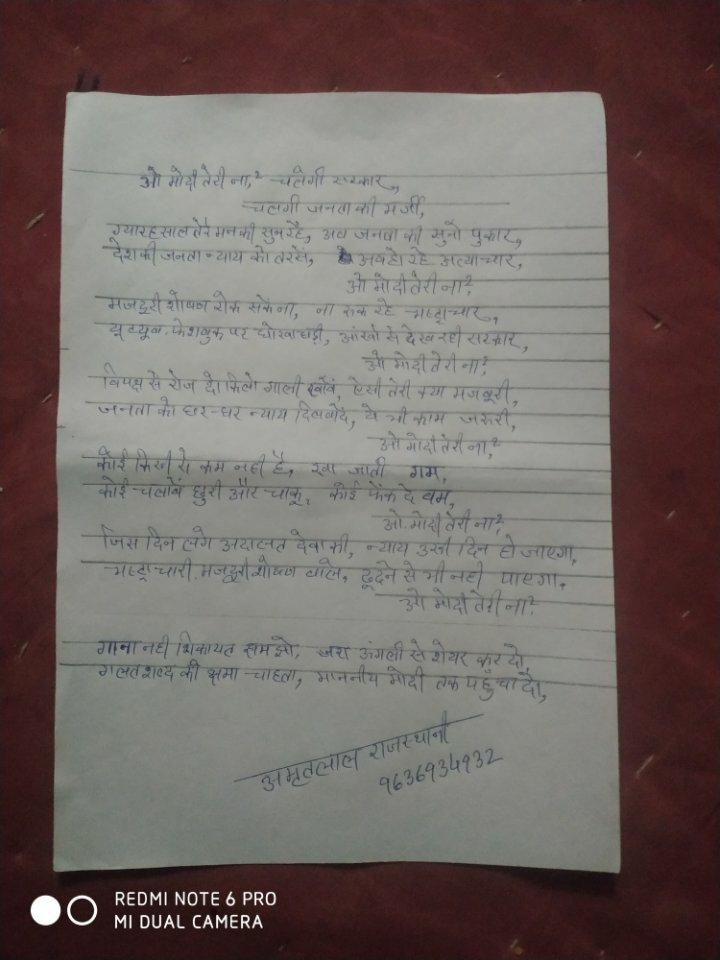 ओ मोदी तेरी ना,² चलेगी सरकार,
चलगी जनता की मर्जी,
ग्यारह साल तेरे मन की सुन रहे, अब जनता की सुनो पुकार,
देश की जनता न्याय को तरसे, अब हो रहे अत्याचार,
ओ मोदी तेरी ना²
मजदूरी शोषण रोक सके ना, ना रुक रहे भष्ट्राचार,
यू ट्यूब फेशबुक पर धोखाधड़ी, आंखो से देख रही सरकार,
ओ मोदी तेरी ना²
विपक्ष से रोज दो किलो गाली खावें, ऐसी तेरी क्या मजबूरी,
जनता को घर-घर न्याय दिलवादे, ये भी काम जरुरी,
ओ मोदी तेरी ना²
कोई किसी से कम नही है, खा जाती गम,
कोई चलावें छुरी और चाकू, कोई फेंक दे बम,
ओ मोदी तेरी ना²
जिस दिन लगे अदालत देवा की, न्याय उसी दिन हो जाएगा,
भष्ट्राचारी मजदूरी शोषण वाले, ढूढने से भी नही पाएगा,
ओ मोदी तेरी ना²
गाना नही शिकायत समझो, जरा ऊंगली से शेयर कर दो,
गलत शब्द की क्षमा चाहता, माननीय मोदी तक पहुचा दो,
अमृतलाल राजस्थानी
9636934932
REDMI NOTE 6 PRO
MI DUAL CAMERA